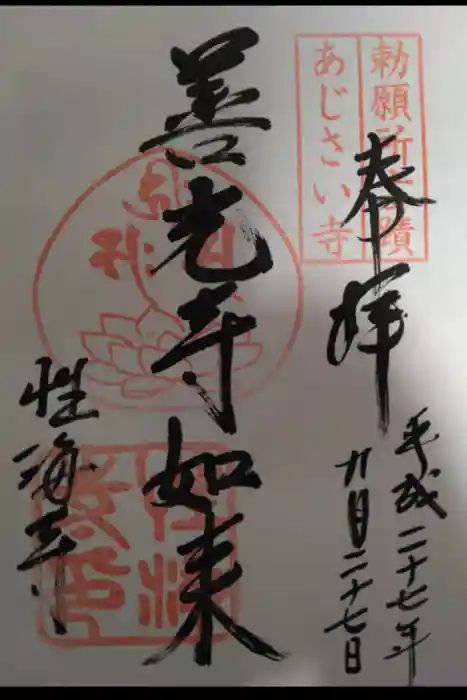 勅願所
蹟
あじさい寺
奉拝
平成二十七年
月二十七日
善光寺如来
性海寺